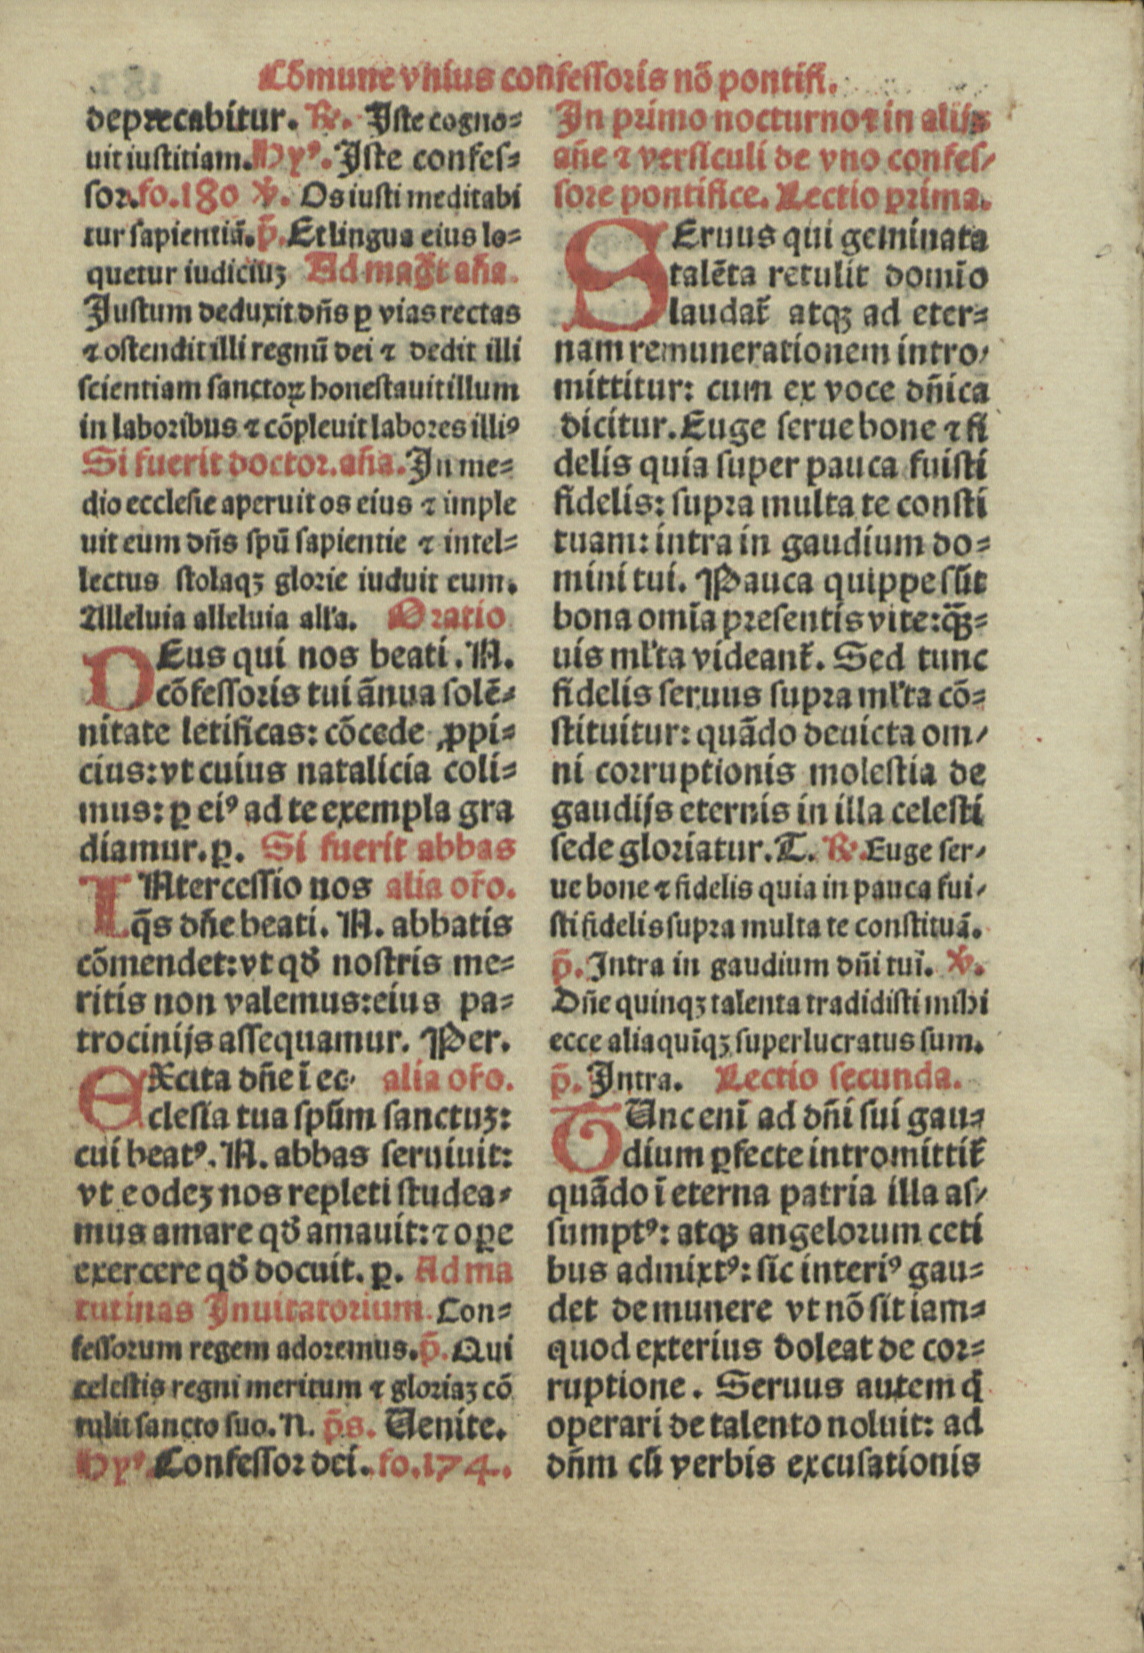 Cōmune vnius confessoris nō pontifi.
deprecabitur. ℟. Iste cogno=
uit iustitiam. Hyꝰ. Iste confes=
sor. fo. 180 ℣. Os iusti meditabi
tur sapientiā. p̄. Et lingua eius lo=
quetur iudiciuꝫ Ad magt̄ an̄a.
Iustum deduxit dn̄s ꝑ vias rectas
⁊ ostendit illi regnū dei ⁊ dedit illi
scientiam sanctoꝝ honestauit illum
in laboribus ⁊ cōpleuit labores illiꝰ
Si fuerit doctor. an̄a. In me=
dio ecclesie aperuit os eius ⁊ imple
uit eum dn̄s spū sapientie ⁊ intel=
lectus stolaqꝫ glorie iuduit eum.
Alleluia alleluia all'a. Oratio
DEus qui nos beati. N.
cōfessoris tui ānua solē=
nitate letificas: cōcede ꝓpi=
cius: vt cuius natalicia coli=
mus: ꝑ eiꝰ ad te exempla gra
diamur. ꝑ. Si fuerit abbas
INtercessio nos alia or̄o.
q̄s dn̄e beati. N. abbatis
cōmendet: vt qd̄ nostris me=
ritis non valemus: eius pa=
trocinijs assequamur. Per.
EXcita dn̄e ī ec= alia or̄o.
clesia tua spūm sanctuꝫ:
cui beatꝰ. N. abbas seruiuit:
vt eodeꝫ nos repleti studea=
mus amare qd̄ amauit: ⁊ oꝑe
exercere qd̄ docuit. ꝑ. Ad ma
tutinas Inuitatorium. Con=
fessorum regem adoremus. p̄. Qui
celestis regni meritum ⁊ gloriaꝫ cō
tulit sancto suo. N. p̄s. Uenite.
Hyꝰ. Confessor dei. fo. 174.
In primo nocturno ⁊ in alijs
an̄e ⁊ versiculi de vno confes=
sore pontifice. Lectio prima.
SEruus qui geminata
talēta retulit domīo
laudat̄ atqꝫ ad eter=
nam remunerationem intro=
mittitur: cum ex voce dn̄ica
dicitur. Euge serue bone ⁊ fi
delis quia super pauca fuisti
fidelis: supra multa te consti
tuam: intra in gaudium do=
mini tui. Pauca quippe s̄ūt
bona omīa presentis vite: q̄ꝫ=
uis ml'ta videant̄. Sed tunc
fidelis seruus supra ml'ta cō=
stituitur: quādo deuicta om=
ni corruptionis molestia de
gaudijs eternis in illa celesti
sede gloriatur. T. ℟. Euge ser=
ue bone ⁊ fidelis quia in pauca fui=
sti fidelis supra multa te constituā.
p̄. Intra in gaudium dn̄i tui. ℣.
Dn̄e quinqꝫ talenta tradidisti mihi
ecce alia quīqꝫ superlucratus sum.
p̄. Intra. Lectio secunda.
TUnc enī ad dn̄i sui gau=
dium ꝑfecte intromittit̄
quādo ī eterna patria illa as=
sumptꝰ: atqꝫ angelorum ceti
bus admixtꝰ: sic interiꝰ gau=
det de munere vt nō sit iam=
quod exterius doleat de cor=
ruptione. Seruus autem q̄
operari de talento noluit: ad
dn̄m cū verbis excusationis